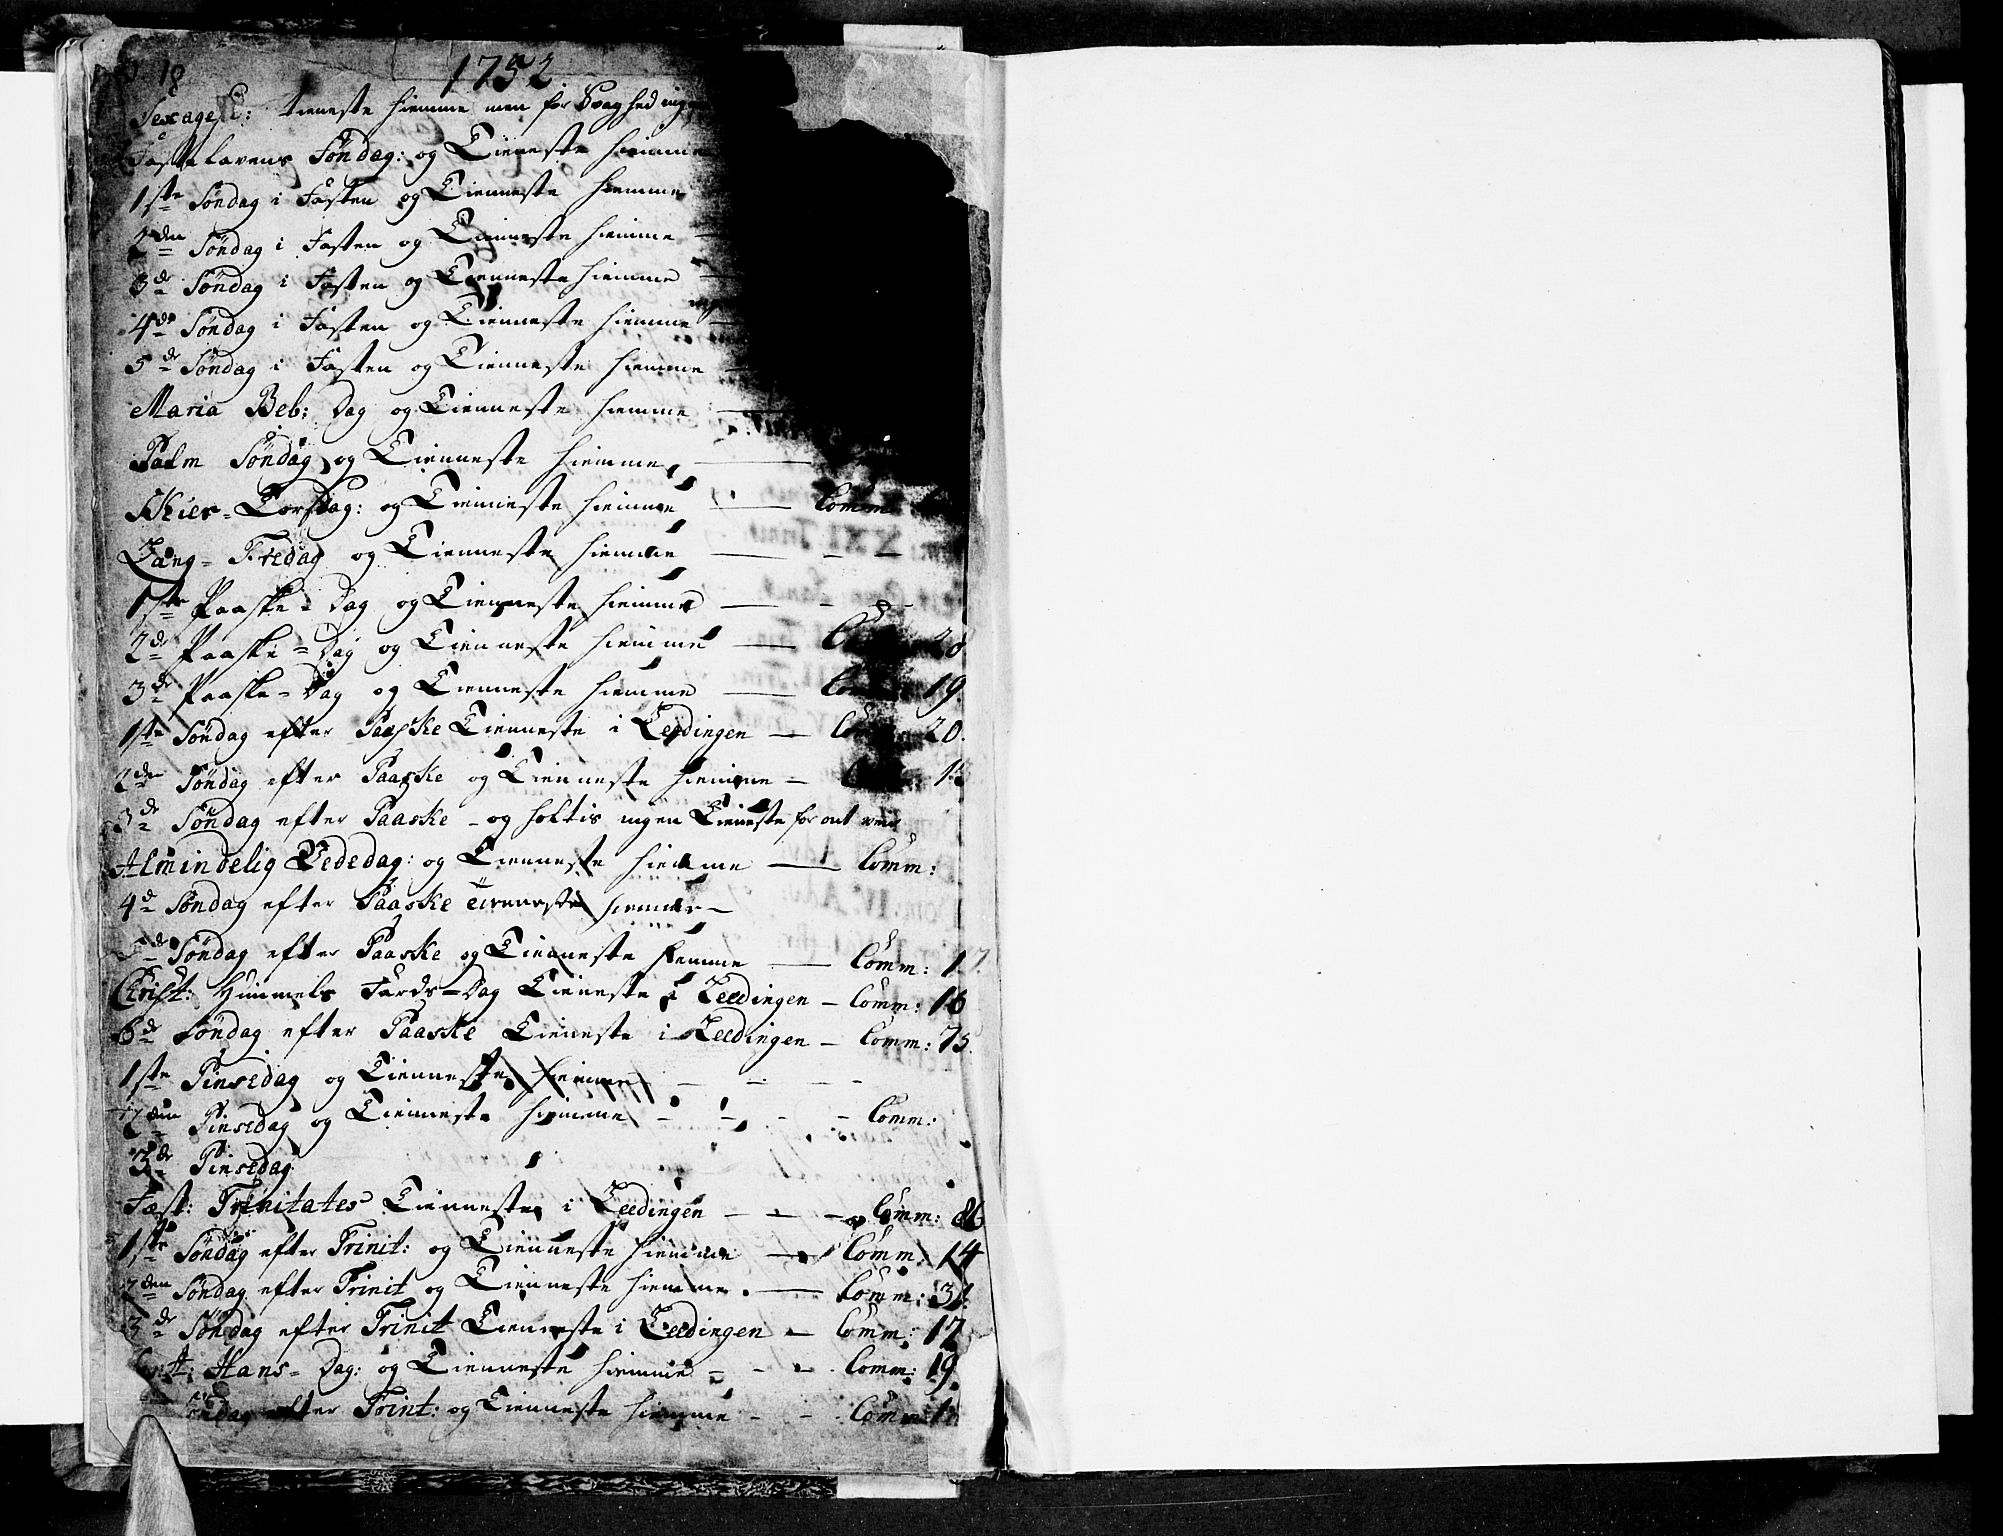 10
1752
Sexages: tieneste hiemme men for Svaghed ingen
Fastelavens Söndag: og Tienneste hiemme
1ste Söndag i Fasten og Tienneste hiemme
2den Söndag i Fasten og Tienneste hiemme —
3de Söndag i Fasten og Tienneste hiemme —
4de Söndag i Fasten og Tienneste hiemme —
5de Söndag i Fasten og Tienneste hiemme —
Maria Beb: Dag og Tienneste hiemme —
Palm Söndag og Tienneste hiemme —
Skier-Torsdag: og Tienneste hiemme — Comm
Lang-Fredag og Tienneste hiemme — — —
1ste Paaske-Dag og Tienneste hiemme — — —
2de Paaske-Dag og Tienneste hiemme — 28
3de Paaske-Dag og Tienneste hiemme — Com 19.
1ste Söndag efter Paaske Tienneste i Leedingen — Com 20.
2den Söndag efter Paaske og Tienneste hiemme —
3de Söndag efter Paaske - og holtis ingen Tieneste for ont veir
Almindelig Bededag: og Tienneste hiemme — Comm:
4de Söndag efter Paaske Tienneste hiemme —
5de Söndag efter Paaske og Tienneste hiemme — Comm: 17.
Christ: Himmels Fards-Dag Tieneste i Leedingen — Comm: 16
6de Söndag efter Paaske Tieneste i Leedingen — Comm: 75.
1ste Pinsedag og Tienneste hiemme — — — —
2den Pinsedag og Tienneste hiemme — — — — Comm:
3de Pinsedag
Fest: Trinitates Tienneste i Leedingen — — — Comm: 86
1ste Söndag efter Trinit: og Tienneste hiemme — Comm: 14
2den Söndag efter Trinit og Tienneste hiemme. — Comm: 31.
3de Söndag efter Trinit Tienneste i Leedingen — Comm: 17
St: Hans-Dag: og Tienneste hiemme — — — Comm: 19.
Söndag efter Trint: og Tienneste hiemme — — Comm: